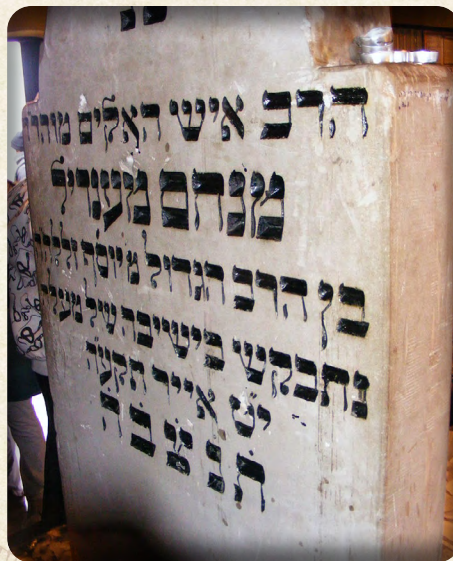 הרב איש האלקים מוהר
מנחם מענדיל
בן הרב הגדול מ יוסף זללה
נתבקש בישיבה שיל מעלה
יט אייר תקע״ה
ת נ צ ב ה